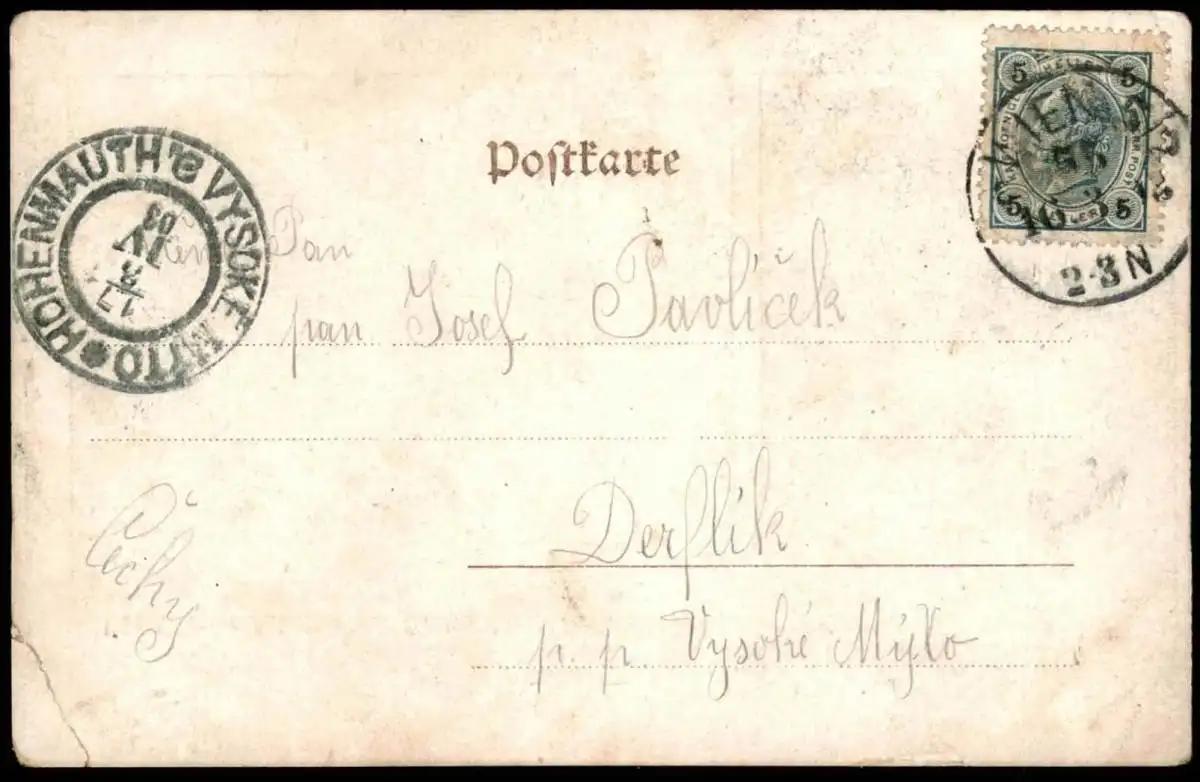 Postkarte
5 5
5 5
10 3
2-3N
HOHENMAUTH * VYSOKÉ MÝTO
17
3
IV
03
Pan
pan Josef Pavlíček
Derflík
Čechy
p. p. Vysoké Mýto